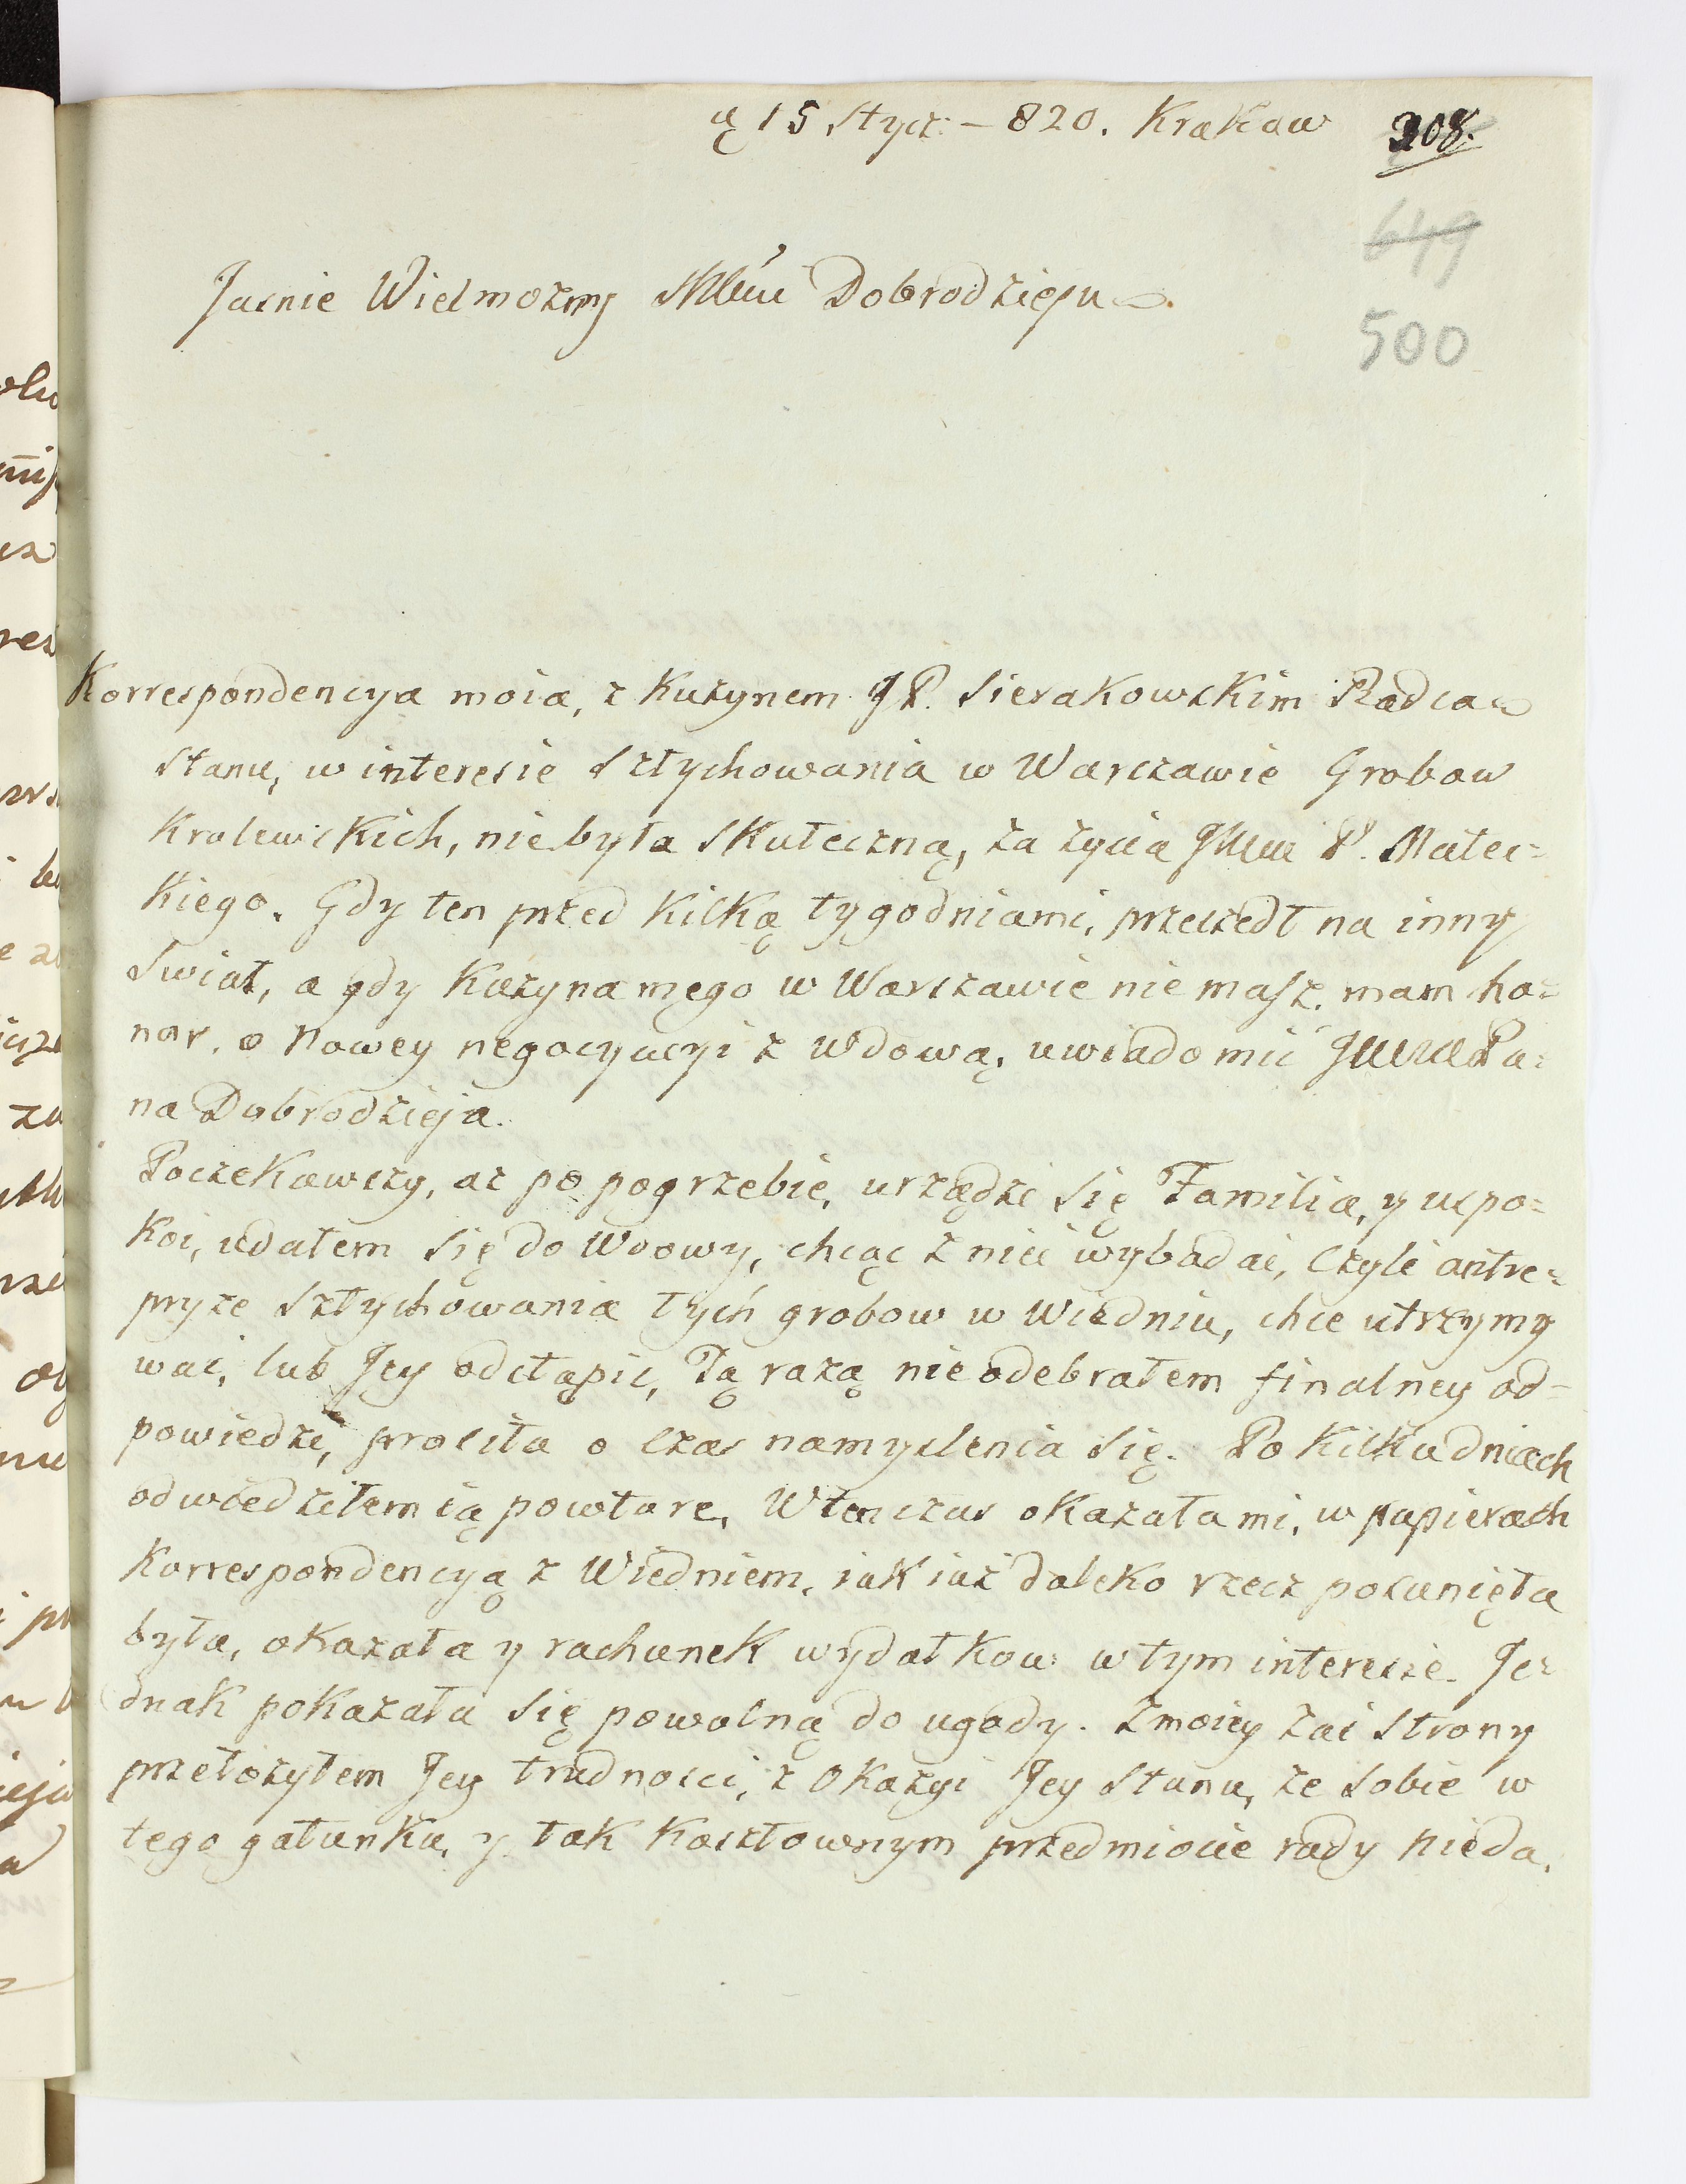 ą 15 Stycz: – 820. Krakow 308.
649
500
Jasnie Wielmozny Dobrodzieju
Korrespondencya moia, z Kuzynem JP. Sierakowskim Radca
Stanu, w interesie Sztychowania w Warszawie Grobow
Krolewskich, nie była Skuteczną, za zycia P. Matec=
kiego. Gdy ten przed kilką tygodniami, przeszedł na inny
Swiat, a gdy Kuzyna mego w Warszawie nie masz, mam ho=
nor, o Nowey negocyacyi z Wdową, uwiadomić Pa=
na Dobrodzieja.
Poczekawszy, az po pogrzebie, urządzi się Familia, y uspo=
koi, udałem się do Wdowy, chcąc z niei wybadac, Czyli antre=
pryze Sztychowania tych grobow w Wiedniu, chce utrzymy
wac, lub Jey odstąpic, Tą razą nie odebrałem finalney od=
powiedzi, prosiła o czas namyslenia się. Po kilku dniach
odwiedziłem ią powtore, Wtenczas okazała mi, w papierach
Korrespondencyą z Wiedniem, iak iuż daleko rzecz posunięta
była, okazała y rachunek wydatkow w tym interesie. Je=
dnak pokazała się powolną do ugody. Zmoiey zas Strony
przełozyłem Jey trudnosci, z Okazyi Jey Stanu, ze Sobie w
tego gatunku, y tak kosztownym przedmiocie rady nieda,